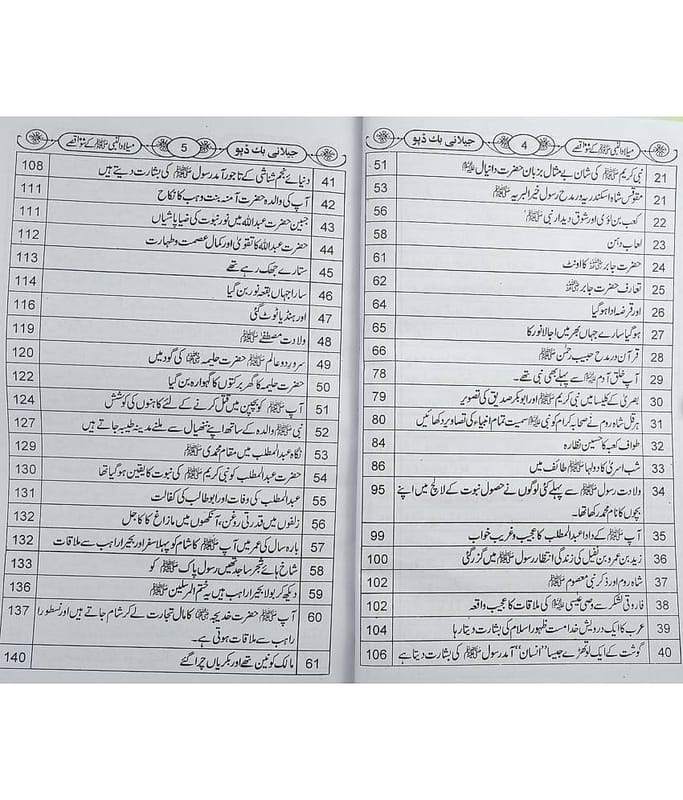 میلاد النبی ﷺ کے سو واقعے 4 جیلانی بک ڈپو
21 نبی کریم ﷺ کی شان بے مثال بزبان حضرت دانیال 51
21 مقوقس شاہ اسکندریہ در مدح رسول خیر البریہ ﷺ 53
22 کعب بن لؤی اور شوق دیدار نبی ﷺ 56
23 لعاب دہن 58
24 حضرت جابر کا اونٹ 62
25 تعارف حضرت جابر 62
26 اور قرضہ ادا ہو گیا 64
27 ہو گیا سارے جہاں بھر میں اجالا نور کا 65
28 قرآن در مدح حبیب رحمٰن ﷺ 66
29 آپ خلق آدم سے پہلے بھی نبی تھے۔ 78
30 بصریٰ کے کلیسا میں نبی کریم ﷺ اور ابوبکر صدیق کی تصویر 79
31 ہرقل شاہ روم نے صحابہ کرام کو نبی سمیت تمام انبیاء کی تصاویر دکھائیں 80
32 طواف کعبہ کا حسین نظارہ 84
33 شب اسریٰ کا دولہا ﷺ طائف میں 86
34 ولادت رسول ﷺ سے پہلے کئی لوگوں نے حصول نبوت کے لالچ میں اپنے 95
بچوں کا نام محمد رکھا تھا۔
35 آپ ﷺ کے دادا عبدالمطلب کا عجیب و غریب خواب 99
36 زید بن عمرو بن نفیل کی زندگی انتظار رسول ﷺ میں گزر گئی 100
37 شاہ روم اور ذکر نبی معصوم ﷺ 102
38 فاروقی لشکر سے وصی عیسیٰ کی ملاقات کا عجیب واقعہ 102
39 عرب کا ایک درویش خدا مست ظہور اسلام کی بشارت دیتا رہا 104
40 گوشت کے ایک لوتھڑے جیسا "انسان" آمد رسول ﷺ کی بشارت دیتا ہے 106
میلاد النبی ﷺ کے سو واقعے 5 جیلانی بک ڈپو
41 دنیائے نجم شناشی کے تاجور آمد رسول ﷺ کی بشارت دیتے ہیں 108
42 آپ کی والدہ حضرت آمنہ بنت وہب کا نکاح 111
43 جبین حضرت عبداللہ میں نور نبوت کی ضیا پاشیاں 111
44 حضرت عبداللہ کا تقویٰ اور کمال عصمت و طہارت 112
45 ستارے جھک رہے تھے 113
46 سارا جہاں بقعہ نور بن گیا 114
47 اور ہنڈیا ٹوٹ گئی 116
48 ولادت مصطفےٰ ﷺ 119
49 سرور دو عالم ﷺ حضرت حلیمہ کی گود میں 120
50 حضرت حلیمہ کا گھر برکتوں کا گہوارہ بن گیا 122
51 آپ ﷺ کو بچپن میں قتل کرنے کے لئے کاہنوں کی کوشش 124
52 نبی ﷺ والدہ کے ساتھ اپنے ننھیال سے ملنے مدینہ طیبہ جاتے ہیں 127
53 نگاہ عبدالمطلب میں مقام محمدی ﷺ 129
54 حضرت عبدالمطلب کو نبی کریم ﷺ کی نبوت کا یقین ہو گیا تھا 130
55 عبدالمطلب کی وفات اور ابوطالب کی کفالت 131
56 زلفوں میں قدرتی روغن، آنکھوں میں مازاغ کا کاجل 132
57 بارہ سال کی عمر میں آپ ﷺ کا شام کو پہلا سفر اور بحیرا راہب سے ملاقات 132
58 شاخ ہائے شجر ساجد تھیں رسول پاک ﷺ کو 133
59 دیکھ کر بولا بحیرا راہب ہیں یہ ختم المرسلین ﷺ 136
60 آپ ﷺ حضرت خدیجہ کا مال تجارت لے کر شام جاتے ہیں اور نسطورا 137
راہب سے ملاقات ہوتی ہے۔
61 مالک کونین تھے اور بکریاں چرا گئے 140